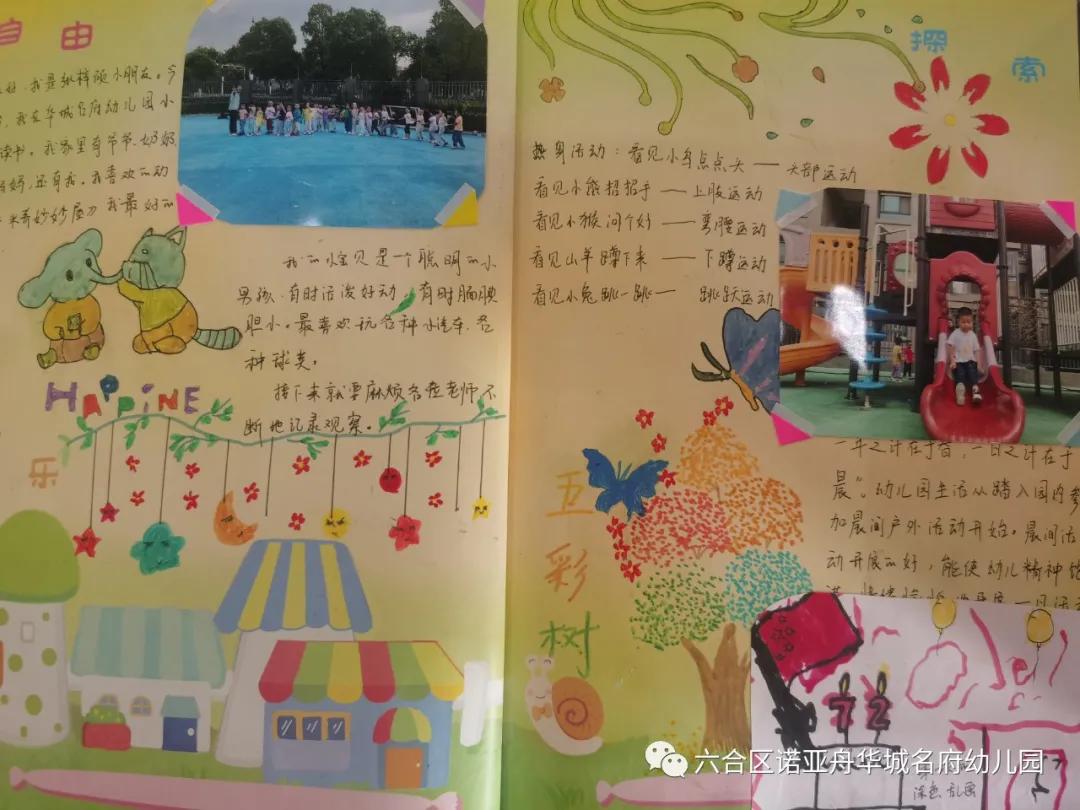 自由
我是纵梓颂小朋友。今
我在华城名府幼儿园小
读书。我家里有爷爷、奶奶
妈，还有我。我喜欢的动
米奇妙妙屋》我最好的
我的小宝贝是一个聪明的小
男孩，有时活泼好动，有时腼腆
胆小。最喜欢玩各种小汽车、各
种球类。
接下来就要麻烦各位老师不
断地记录观察。
HAPPINE
乐
探索
热身活动：看见小鸟点点头——头部运动
看见小熊招招手——上肢运动
看见小猴问个好——弯腰运动
看见山羊蹲下来——下蹲运动
看见小兔跳一跳——跳跃运动
一年之计在于春，一日之计在于
晨"。幼儿园生活从踏入园内参
加晨间户外活动开始。晨间活
动开展的好，能使幼儿精神饱
五彩树
72
涂色乱画
六合区诺亚舟华城名府幼儿园